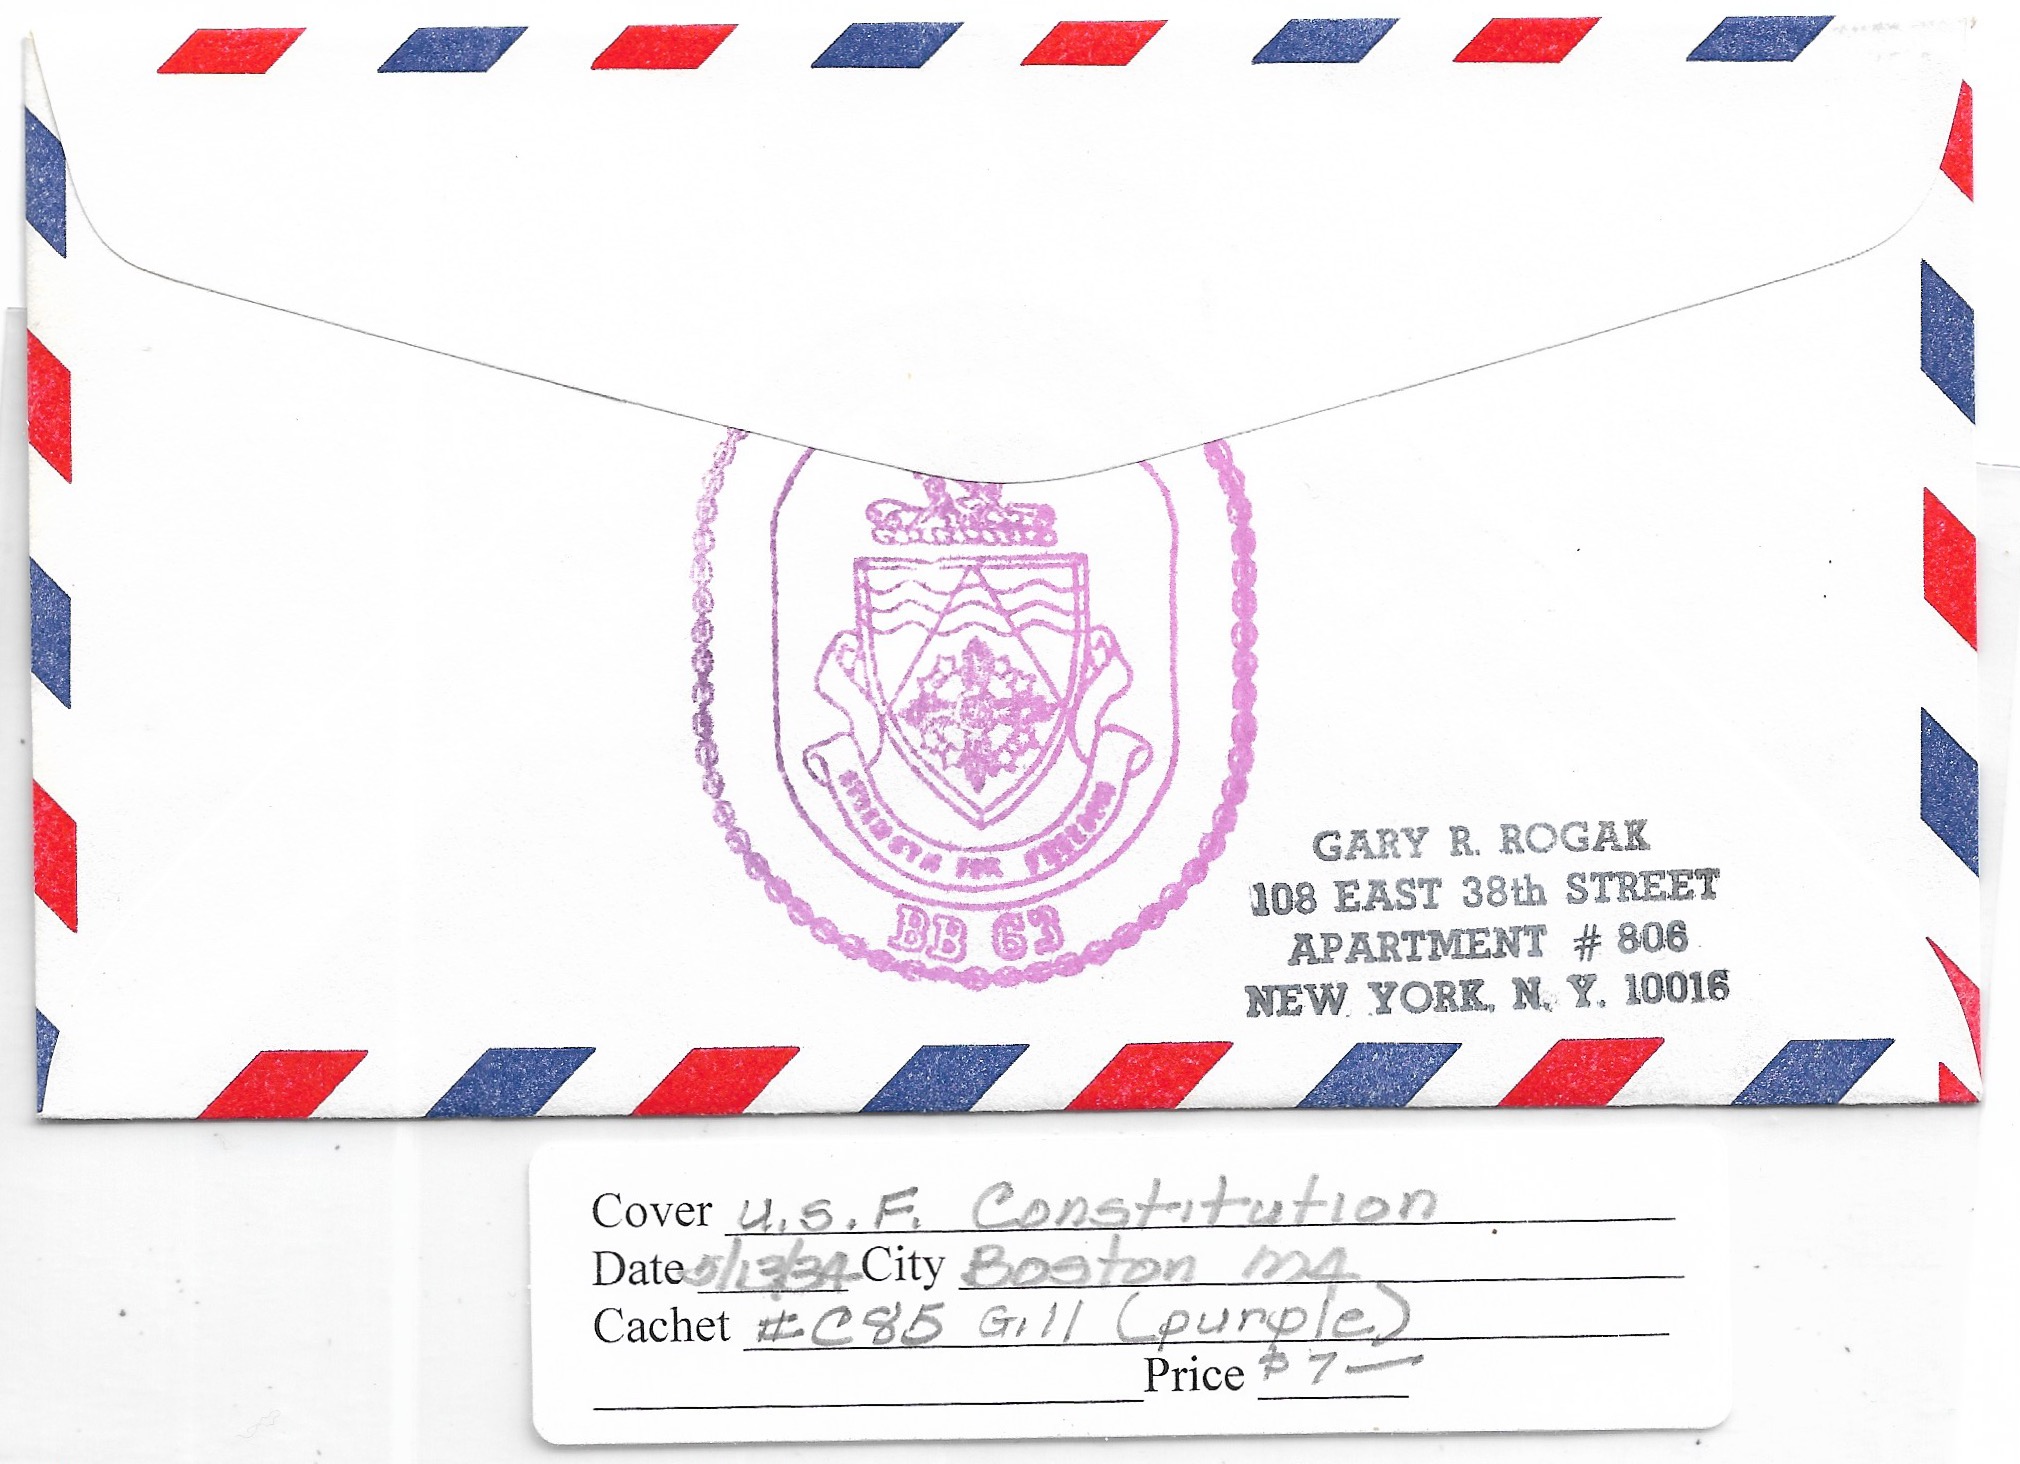 STRENGTH FOR FREEDOM
BB 63
GARY R. ROGAK
108 EAST 38th STREET
APARTMENT # 806
NEW YORK, N. Y. 10016
Cover U.S.F. Constitution
Date 5/13/34 City Boston MA
Cachet #C85 Gill (purple)
Price $7—